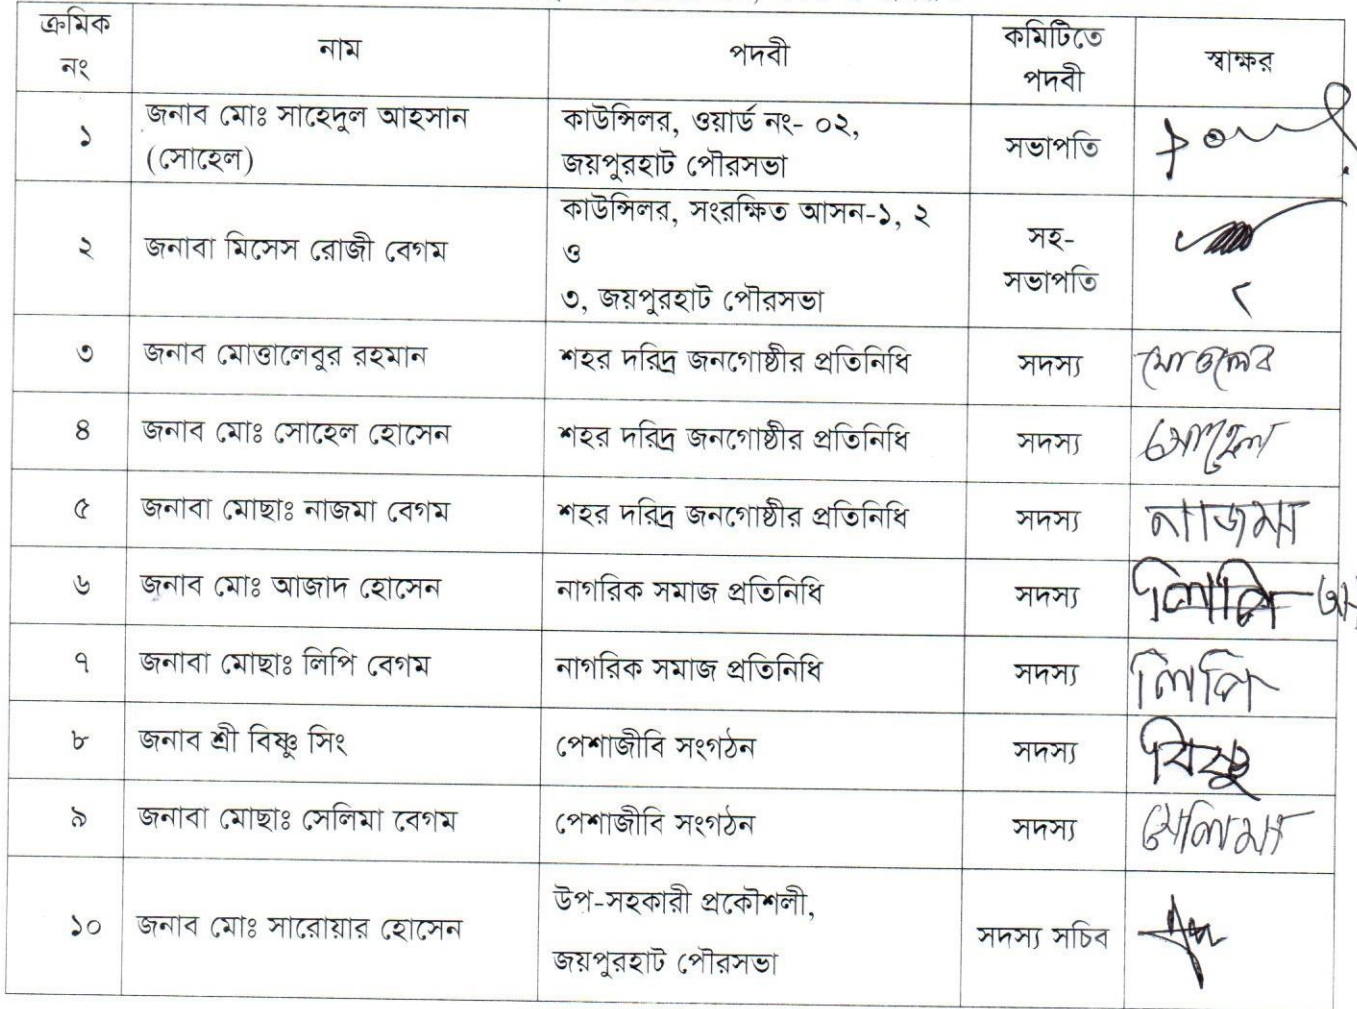 ক্রমিক নং নাম পদবী কমিটিতে পদবী স্বাক্ষর
১ জনাব মোঃ সাহেদুল আহসান (সোহেল) কাউন্সিলর, ওয়ার্ড নং- ০২, জয়পুরহাট পৌরসভা সভাপতি
২ জনাবা মিসেস রোজী বেগম কাউন্সিলর, সংরক্ষিত আসন-১, ২ ও ৩, জয়পুরহাট পৌরসভা সহ-সভাপতি
৩ জনাব মোত্তালেবুর রহমান শহর দরিদ্র জনগোষ্ঠীর প্রতিনিধি সদস্য
৪ জনাব মোঃ সোহেল হোসেন শহর দরিদ্র জনগোষ্ঠীর প্রতিনিধি সদস্য সোহেল
৫ জনাবা মোছাঃ নাজমা বেগম শহর দরিদ্র জনগোষ্ঠীর প্রতিনিধি সদস্য নাজমা
৬ জনাব মোঃ আজাদ হোসেন নাগরিক সমাজ প্রতিনিধি সদস্য লিপি
৭ জনাবা মোছাঃ লিপি বেগম নাগরিক সমাজ প্রতিনিধি সদস্য লিপি
৮ জনাব শ্রী বিষ্ণু সিং পেশাজীবি সংগঠন সদস্য বিষ্ণু
৯ জনাবা মোছাঃ সেলিমা বেগম পেশাজীবি সংগঠন সদস্য সেলিমা
১০ জনাব মোঃ সারোয়ার হোসেন উপ-সহকারী প্রকৌশলী, জয়পুরহাট পৌরসভা সদস্য সচিব